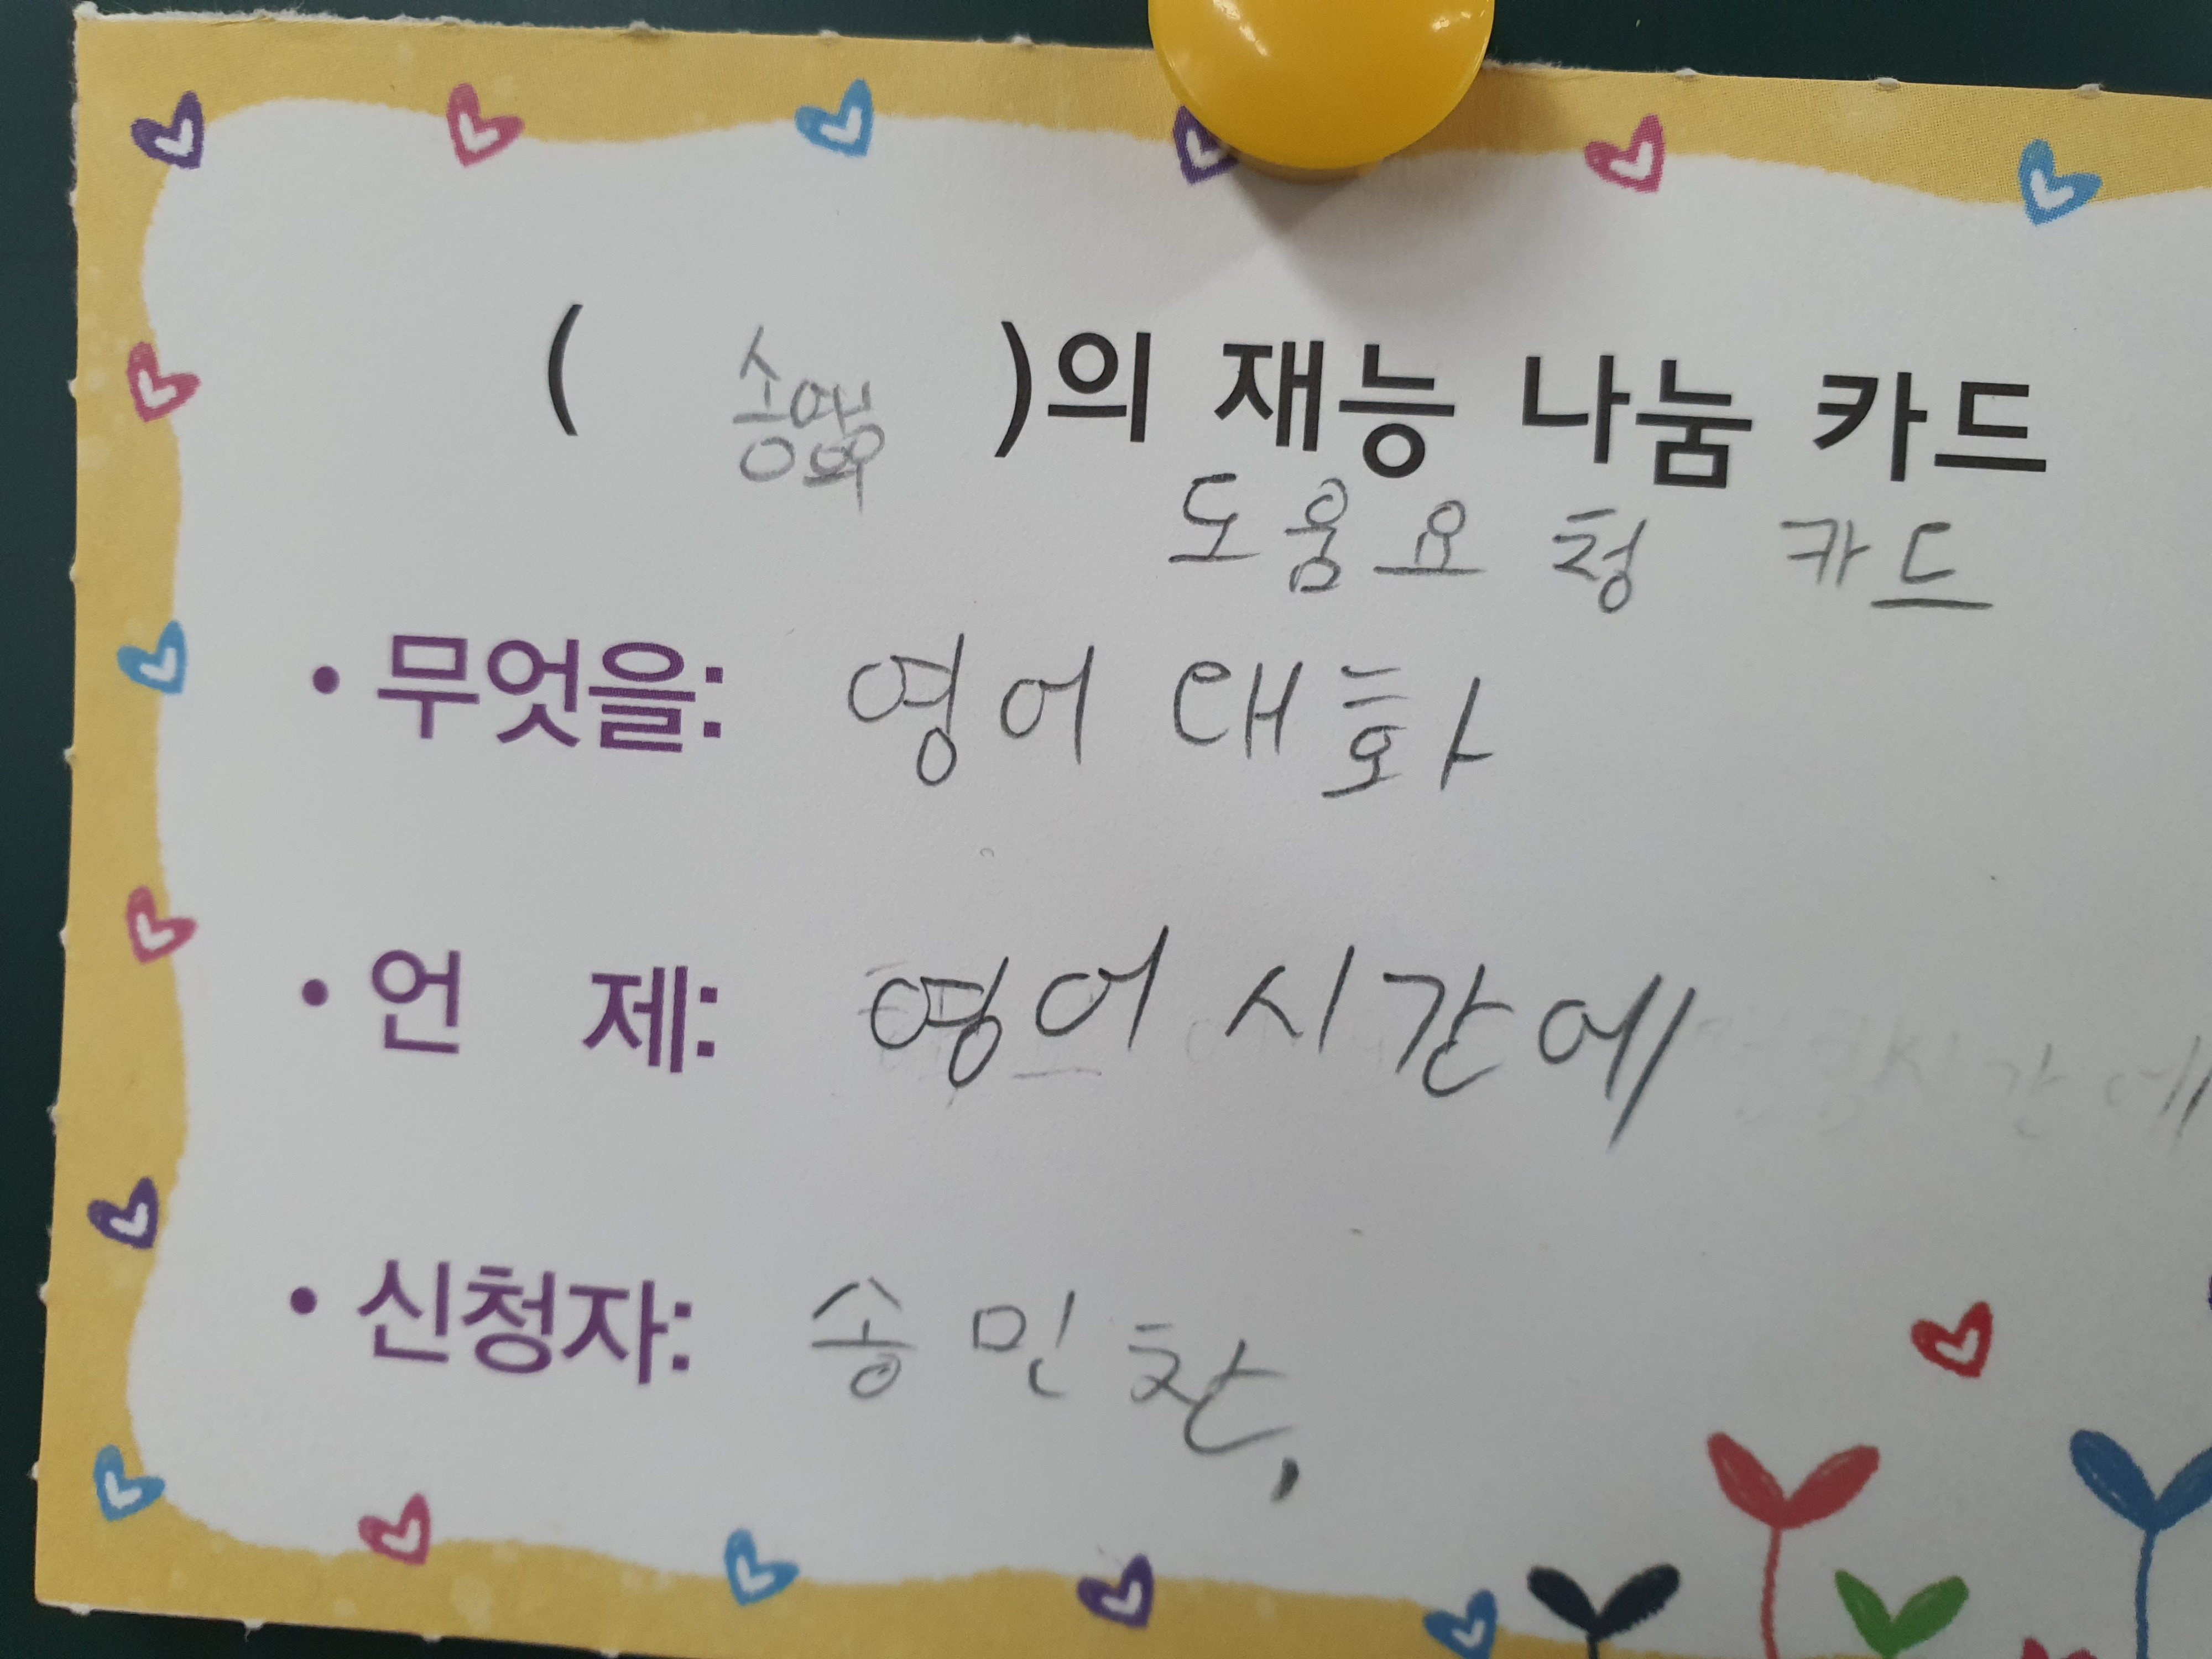 ( )의 재능 나눔 카드
도움요청 카드
• 무엇을: 영어 대화
• 언 제: 영어 시간에
• 신청자: 송민찬,